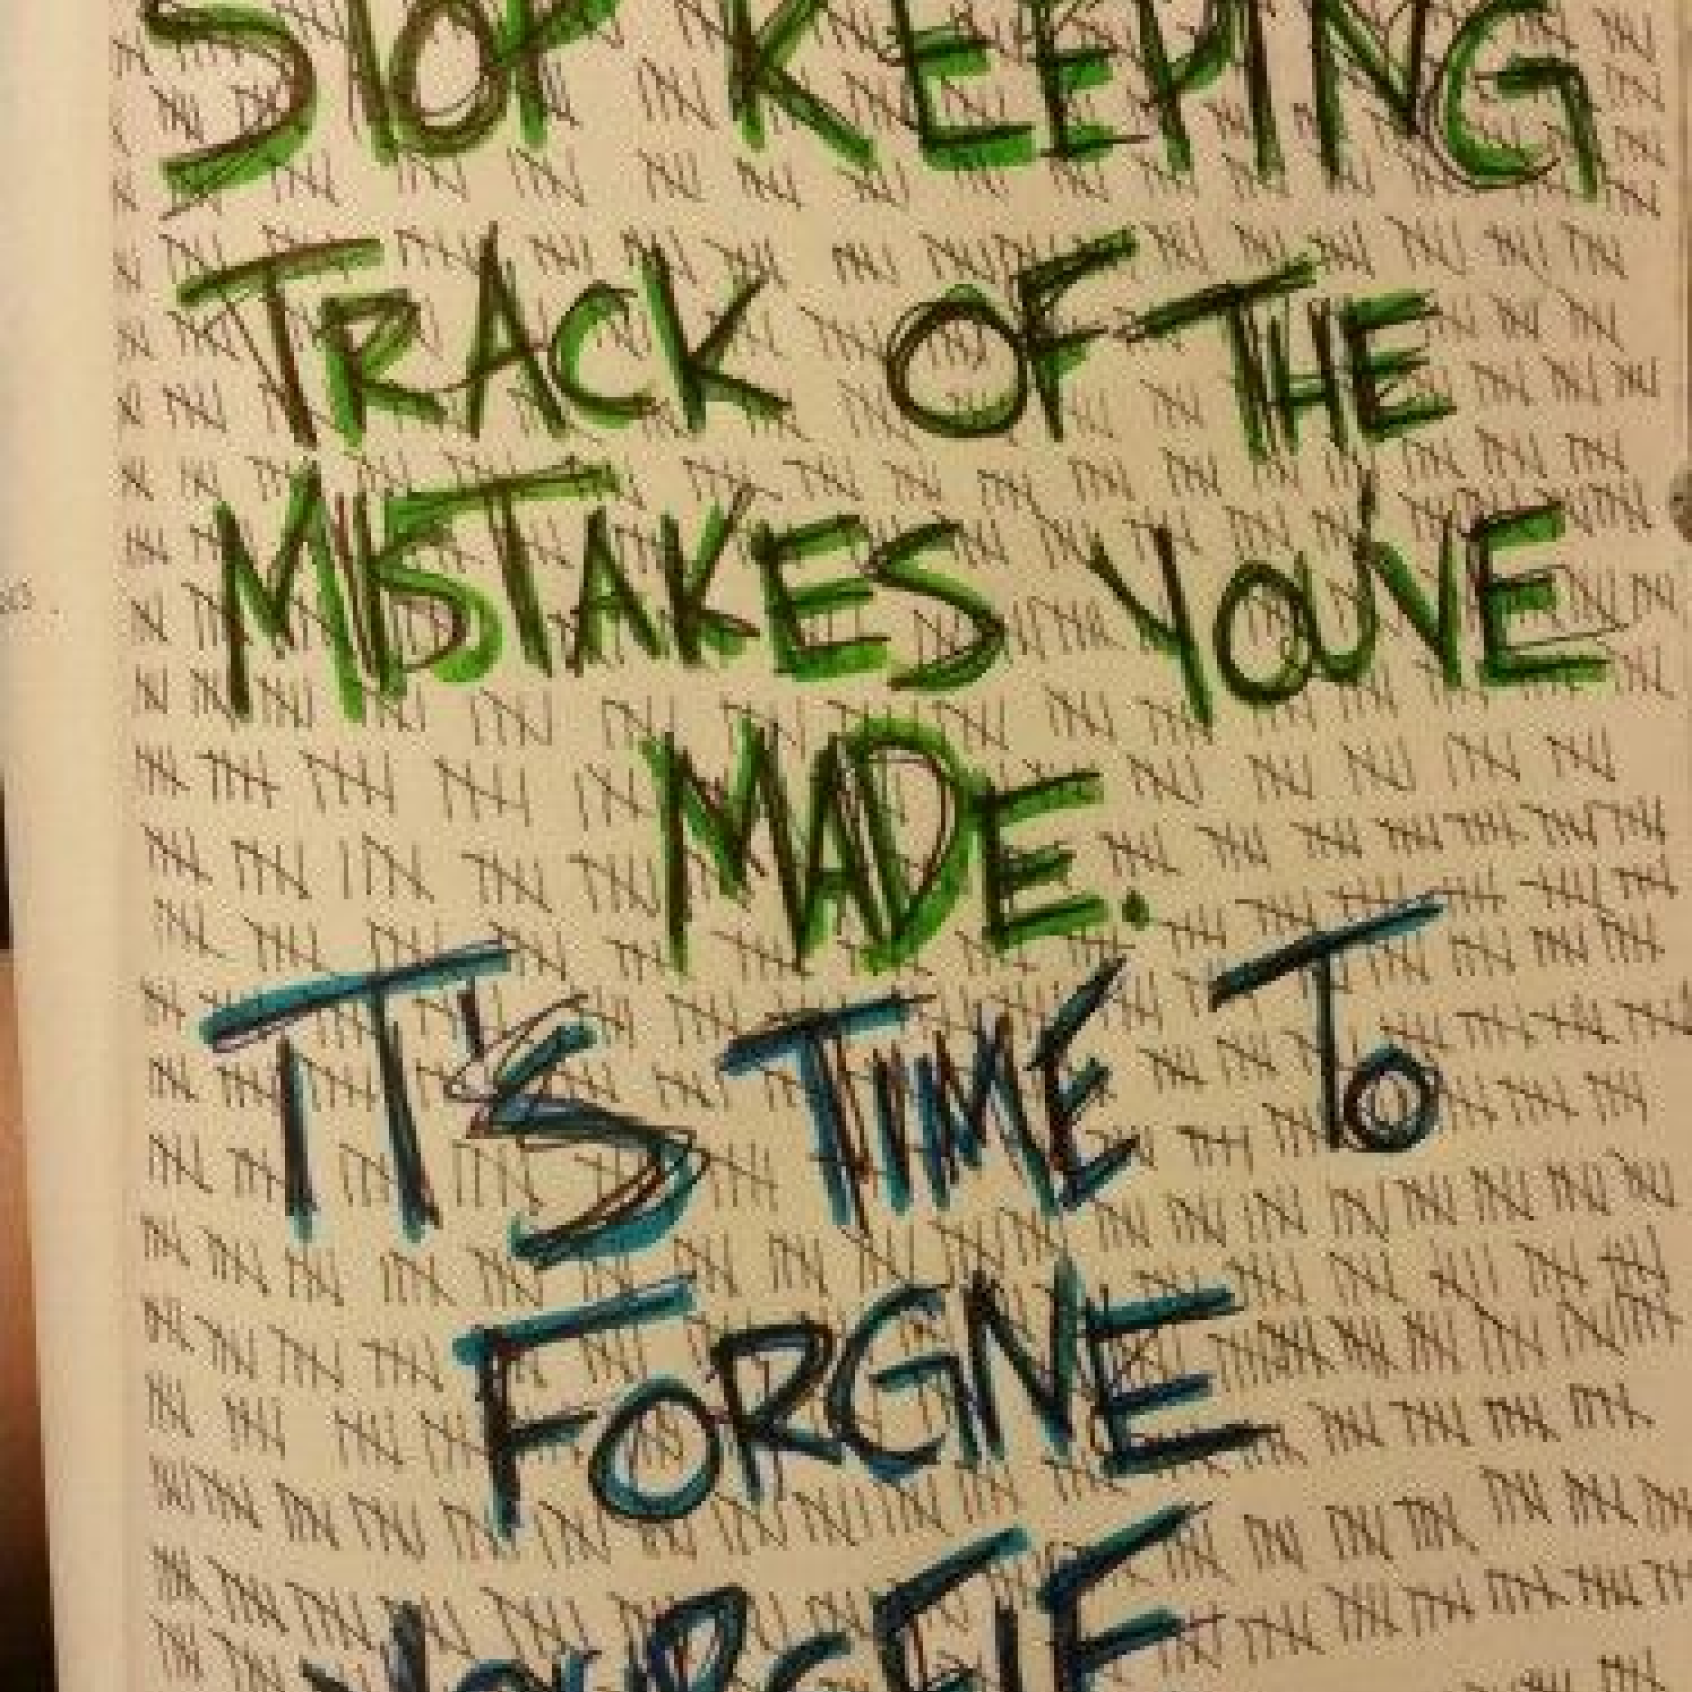 STOP KEEPING
TRACK OF THE
MISTAKES YOU'VE
MADE.
IT'S TIME TO
FORGIVE
YOURSELF